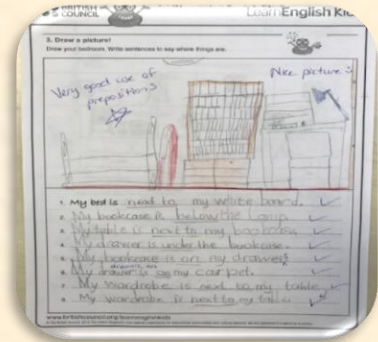 BRITISH
COUNCIL
LearnEnglish Kid
3. Draw a picture!
Draw your bedroom. Write sentences to say where things are.
Very good use of
prepositions
Nice picture
1. My bed is next to my white board.
2. My bookcase is below the lamp.
3. My table is next to my bookcase.
4. My drawer is under the bookcase.
5. My bookcase is on my drawer
6. My drawer is my carpet.
7. My wardrobe is next to my table
8. My wardrobe is next to my table.
www.britishcouncil.org/learnenglishkids